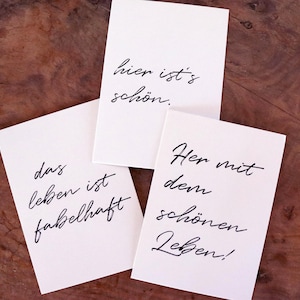 hier ist's
schön.
das
leben ist
fabelhaft
Her mit
dem
schönen
Leben!